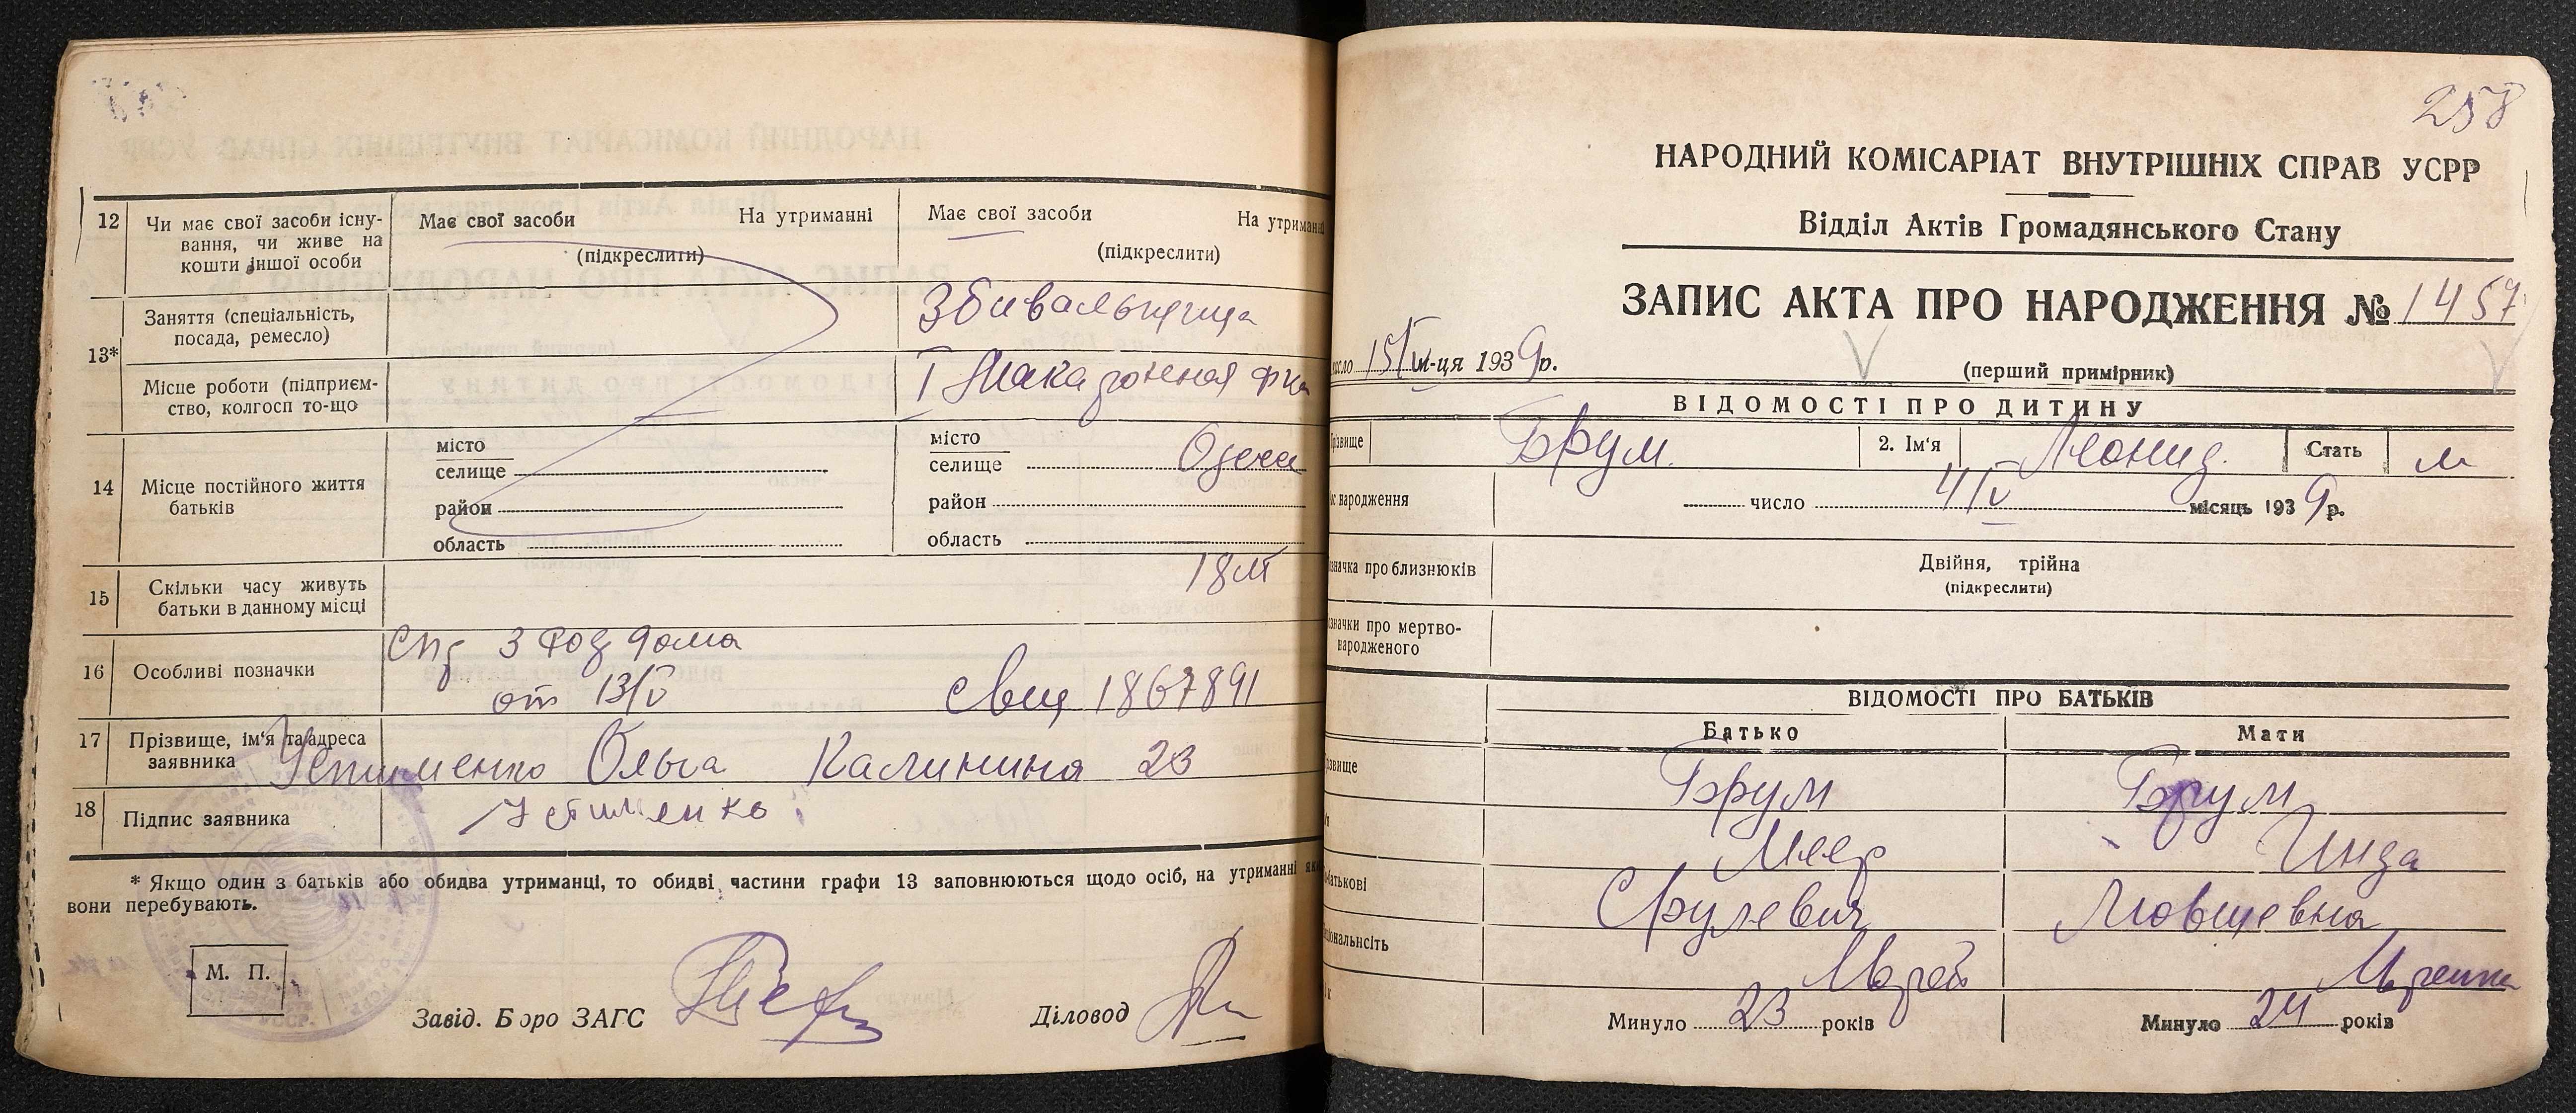 12
Чи має свої засоби існу-
вання, чи живе на
кошти іншої особи
Має свої засоби На утриманні
(підкреслити)
Має свої засоби На утриманні
(підкреслити)
13*
Заняття (спеціальність,
посада, ремесло)
Збивальниця
Місце роботи (підприєм-
ство, колгосп то-що
Макаронная ф-ка
14
Місце постійного життя
батьків
місто
селище
район
область
місто
селище Одесса
район
область
15
Скільки часу живуть
батьки в данному місці
18
16
Особливі позначки
3 Род дома
от 13/V свид 1867891
17
Прізвище, ім'я та адреса
заявника
Устименко Ольга Калинина 23
18
Підпис заявника
Устименко
* Якщо один з батьків або обидва утриманці, то обидві частини графи 13 заповнюються щодо осіб, на утриманні яких
вони перебувають.
М. П.
Завід. Бюро ЗАГС
Діловод
258
НАРОДНИЙ КОМІСАРІАТ ВНУТРІШНІХ СПРАВ УСРР
Відділ Актів Громадянського Стану
ЗАПИС АКТА ПРО НАРОДЖЕННЯ № 1457
число 15/V м-ця 1939р.
(перший примірник)
ВІДОМОСТІ ПРО ДИТИНУ
різвище Брум 2. Ім'я Леонид Стать м
с народження
число 4/V місяць 1939р.
значка про близнюків
Двійня, трійна
(підкреслити)
значки про мертво-
народженого
ВІДОМОСТІ ПРО БАТЬКІВ
Батько Мати
різвище Брум Брум
Меер Инда
батькові Срулевич Мовшевна
ціональність
Минуло 23 років
Минуло 24 років